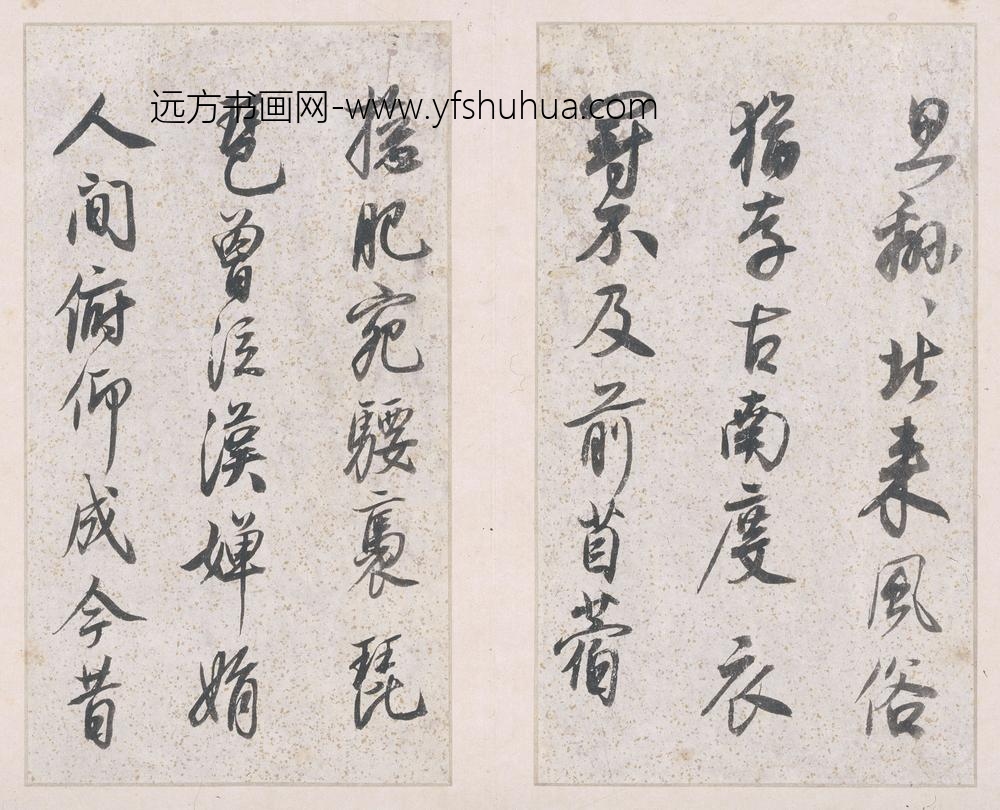 远方书画网-www.yfshuhua.com
思緜〻北來風俗
猶存古南度衣
冠不及前苜蓿
揔肥宛騕褭琵
琶曾泣漢嬋娟
人間俯仰成今昔